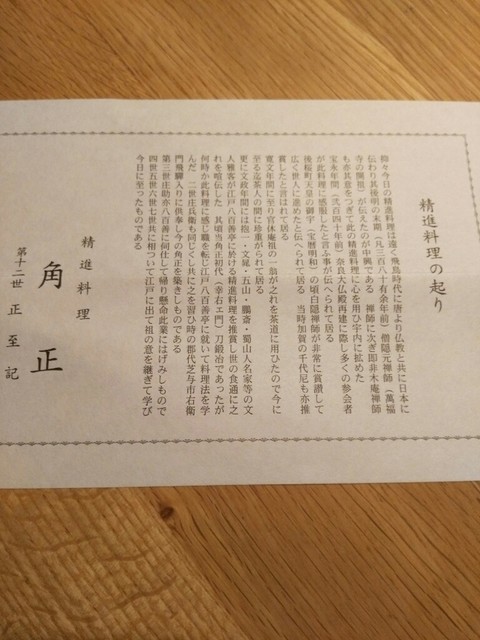 精進料理の起り
抑々今日の精進料理は遠く飛鳥時代に唐より仏教と共に日本に
伝わり其後明の末期(凡三百八十有余年前)僧隠元禅師(萬福
寺の開祖)が伝えたのが中興である 禅師に次ぎ即非木庵禅師
も亦其意をつぎて此の精進料理に心を用ひ宇内に拡めた
宝永年間(弐百四十年前)奈良大仏殿再建に際し多くの参会者
が此料理に感服したと言ふ事が伝へられて居る
後桜町天皇の御宇(宝暦明和)の頃白隠禅師が非常に賞讃して
広く世人に進めたと伝へられて居る 当時加賀の千代尼も亦推
賞したと言はれて居る
寛文年間に至り官休庵祖の一翁が之れを茶道に用ひたので今に
至る迄茶人の間に珍重がられて居る
更に文政年間には抱一・文晁・五山・鵬斎・蜀山人名家等の文
人雅客が江戸八百善亭に於ける精進料理を推賞し世の食通に之
れを喧伝した 其頃当角正初代(幸右ヱ門)刀鍛冶であったが
何時か此料理に感じ職を転じ江戸八百善亭に就いて料理法を学
んだ 二世庄兵衛も同じくし共に之を習ひ時の郡代芝与市右衛
門飛驒入りに供奉し今の角正を築きしものである
第三世庄助亦八百善に何仕して帰り懸命此業にはげみしもので
四世五世六世七世共に相ついて江戸に出て祖の意を継ぎて学び
今日に至ったものである
精進料理
角正
第十二世 正至記